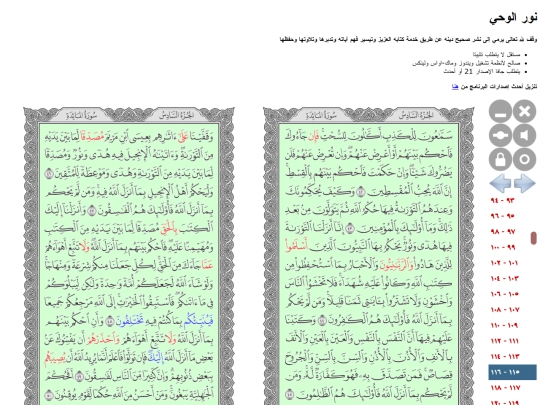 نور الوحي
وقف لله تعالى يرمي إلى نشر صحيح دينه عن طريق خدمة كتابه العزيز وتيسير فهم آياته وتدبرها وتلاوتها وحفظها
مستقل لا يتطلب تثبيتا
صالح لأنظمة تشغيل ويندوز وماك-أواس ولينكس
يتطلب جافا الإصدار 21 أو أحدث
تنزيل أحدث إصدارات البرنامج من هنا
الجزء السادس سورة المائدة
سَمَّٰعُونَ لِلْكَذِبِ أَكَّٰلُونَ لِلسُّحْتِ فَإِن جَآءُوكَ
فَٱحْكُم بَيْنَهُمْ أَوْ أَعْرِضْ عَنْهُمْ وَإِن تُعْرِضْ عَنْهُمْ فَلَن
يَضُرُّوكَ شَيْـًٔا وَإِنْ حَكَمْتَ فَٱحْكُم بَيْنَهُم بِٱلْقِسْطِ
إِنَّ ٱللَّهَ يُحِبُّ ٱلْمُقْسِطِينَ ٤٢ وَكَيْفَ يُحَكِّمُونَكَ
وَعِندَهُمُ ٱلتَّوْرَىٰةُ فِيهَا حُكْمُ ٱللَّهِ ثُمَّ يَتَوَلَّوْنَ مِنۢ بَعْدِ
ذَٰلِكَ وَمَآ أُو۟لَٰٓئِكَ بِٱلْمُؤْمِنِينَ ٤٣ إِنَّآ أَنزَلْنَا ٱلتَّوْرَىٰةَ
فِيهَا هُدًى وَنُورٌ يَحْكُمُ بِهَا ٱلنَّبِيُّونَ ٱلَّذِينَ أَسْلَمُوا۟
لِلَّذِينَ هَادُوا۟ وَٱلرَّبَّٰنِيُّونَ وَٱلْأَحْبَارُ بِمَا ٱسْتُحْفِظُوا۟ مِن
كِتَٰبِ ٱللَّهِ وَكَانُوا۟ عَلَيْهِ شُهَدَآءَ فَلَا تَخْشَوُا۟ ٱلنَّاسَ
وَٱخْشَوْنِ وَلَا تَشْتَرُوا۟ بِـَٔايَٰتِى ثَمَنًا قَلِيلًا وَمَن لَّمْ يَحْكُم
بِمَآ أَنزَلَ ٱللَّهُ فَأُو۟لَٰٓئِكَ هُمُ ٱلْكَٰفِرُونَ ٤٤ وَكَتَبْنَا
عَلَيْهِمْ فِيهَآ أَنَّ ٱلنَّفْسَ بِٱلنَّفْسِ وَٱلْعَيْنَ بِٱلْعَيْنِ وَٱلْأَنفَ
بِٱلْأَنفِ وَٱلْأُذُنَ بِٱلْأُذُنِ وَٱلسِّنَّ بِٱلسِّنِّ وَٱلْجُرُوحَ
قِصَاصٌ فَمَن تَصَدَّقَ بِهِۦ فَهُوَ كَفَّارَةٌ لَّهُۥ وَمَن لَّمْ
يَحْكُم بِمَآ أَنزَلَ ٱللَّهُ فَأُو۟لَٰٓئِكَ هُمُ ٱلظَّٰلِمُونَ ٤٥
الجزء السادس سورة المائدة
وَقَفَّيْنَا عَلَىٰٓ ءَاثَٰرِهِم بِعِيسَى ٱبْنِ مَرْيَمَ مُصَدِّقًا لِّمَا بَيْنَ يَدَيْهِ
مِنَ ٱلتَّوْرَىٰةِ وَءَاتَيْنَٰهُ ٱلْإِنجِيلَ فِيهِ هُدًى وَنُورٌ وَمُصَدِّقًا
لِّمَا بَيْنَ يَدَيْهِ مِنَ ٱلتَّوْرَىٰةِ وَهُدًى وَمَوْعِظَةً لِّلْمُتَّقِينَ ٤٦
وَلْيَحْكُمْ أَهْلُ ٱلْإِنجِيلِ بِمَآ أَنزَلَ ٱللَّهُ فِيهِ وَمَن لَّمْ يَحْكُم
بِمَآ أَنزَلَ ٱللَّهُ فَأُو۟لَٰٓئِكَ هُمُ ٱلْفَٰسِقُونَ ٤٧ وَأَنزَلْنَآ إِلَيْكَ
ٱلْكِتَٰبَ بِٱلْحَقِّ مُصَدِّقًا لِّمَا بَيْنَ يَدَيْهِ مِنَ ٱلْكِتَٰبِ
وَمُهَيْمِنًا عَلَيْهِ فَٱحْكُم بَيْنَهُم بِمَآ أَنزَلَ ٱللَّهُ وَلَا تَتَّبِعْ أَهْوَآءَهُمْ
عَمَّا جَآءَكَ مِنَ ٱلْحَقِّ لِكُلٍّ جَعَلْنَا مِنكُمْ شِرْعَةً وَمِنْهَاجًا
وَلَوْ شَآءَ ٱللَّهُ لَجَعَلَكُمْ أُمَّةً وَٰحِدَةً وَلَٰكِن لِّيَبْلُوَكُمْ
فِى مَآ ءَاتَىٰكُمْ فَٱسْتَبِقُوا۟ ٱلْخَيْرَٰتِ إِلَى ٱللَّهِ مَرْجِعُكُمْ جَمِيعًا
فَيُنَبِّئُكُم بِمَا كُنتُمْ فِيهِ تَخْتَلِفُونَ ٤٨ وَأَنِ ٱحْكُم بَيْنَهُم
بِمَآ أَنزَلَ ٱللَّهُ وَلَا تَتَّبِعْ أَهْوَآءَهُمْ وَٱحْذَرْهُمْ أَن يَفْتِنُوكَ عَنۢ
بَعْضِ مَآ أَنزَلَ ٱللَّهُ إِلَيْكَ فَإِن تَوَلَّوْا۟ فَٱعْلَمْ أَنَّمَا يُرِيدُ ٱللَّهُ أَن يُصِيبَهُم
بِبَعْضِ ذُنُوبِهِمْ وَإِنَّ كَثِيرًا مِّنَ ٱلنَّاسِ لَفَٰسِقُونَ ٤٩ أَفَحُكْمَ
ٱلْجَٰهِلِيَّةِ يَبْغُونَ وَمَنْ أَحْسَنُ مِنَ ٱللَّهِ حُكْمًا لِّقَوْمٍ يُوقِنُونَ ٥٠
٩٣ - ٩٤
٩٥ - ٩٦
٩٧ - ٩٨
٩٩ - ١٠٠
١٠١ - ١٠٢
١٠٣ - ١٠٤
١٠٥ - ١٠٦
١٠٧ - ١٠٨
١٠٩ - ١١٠
١١١ - ١١٢
١١٣ - ١١٤
١١٥ - ١١٦
١١٧ - ١١٨
١١٩ - ١٢٠